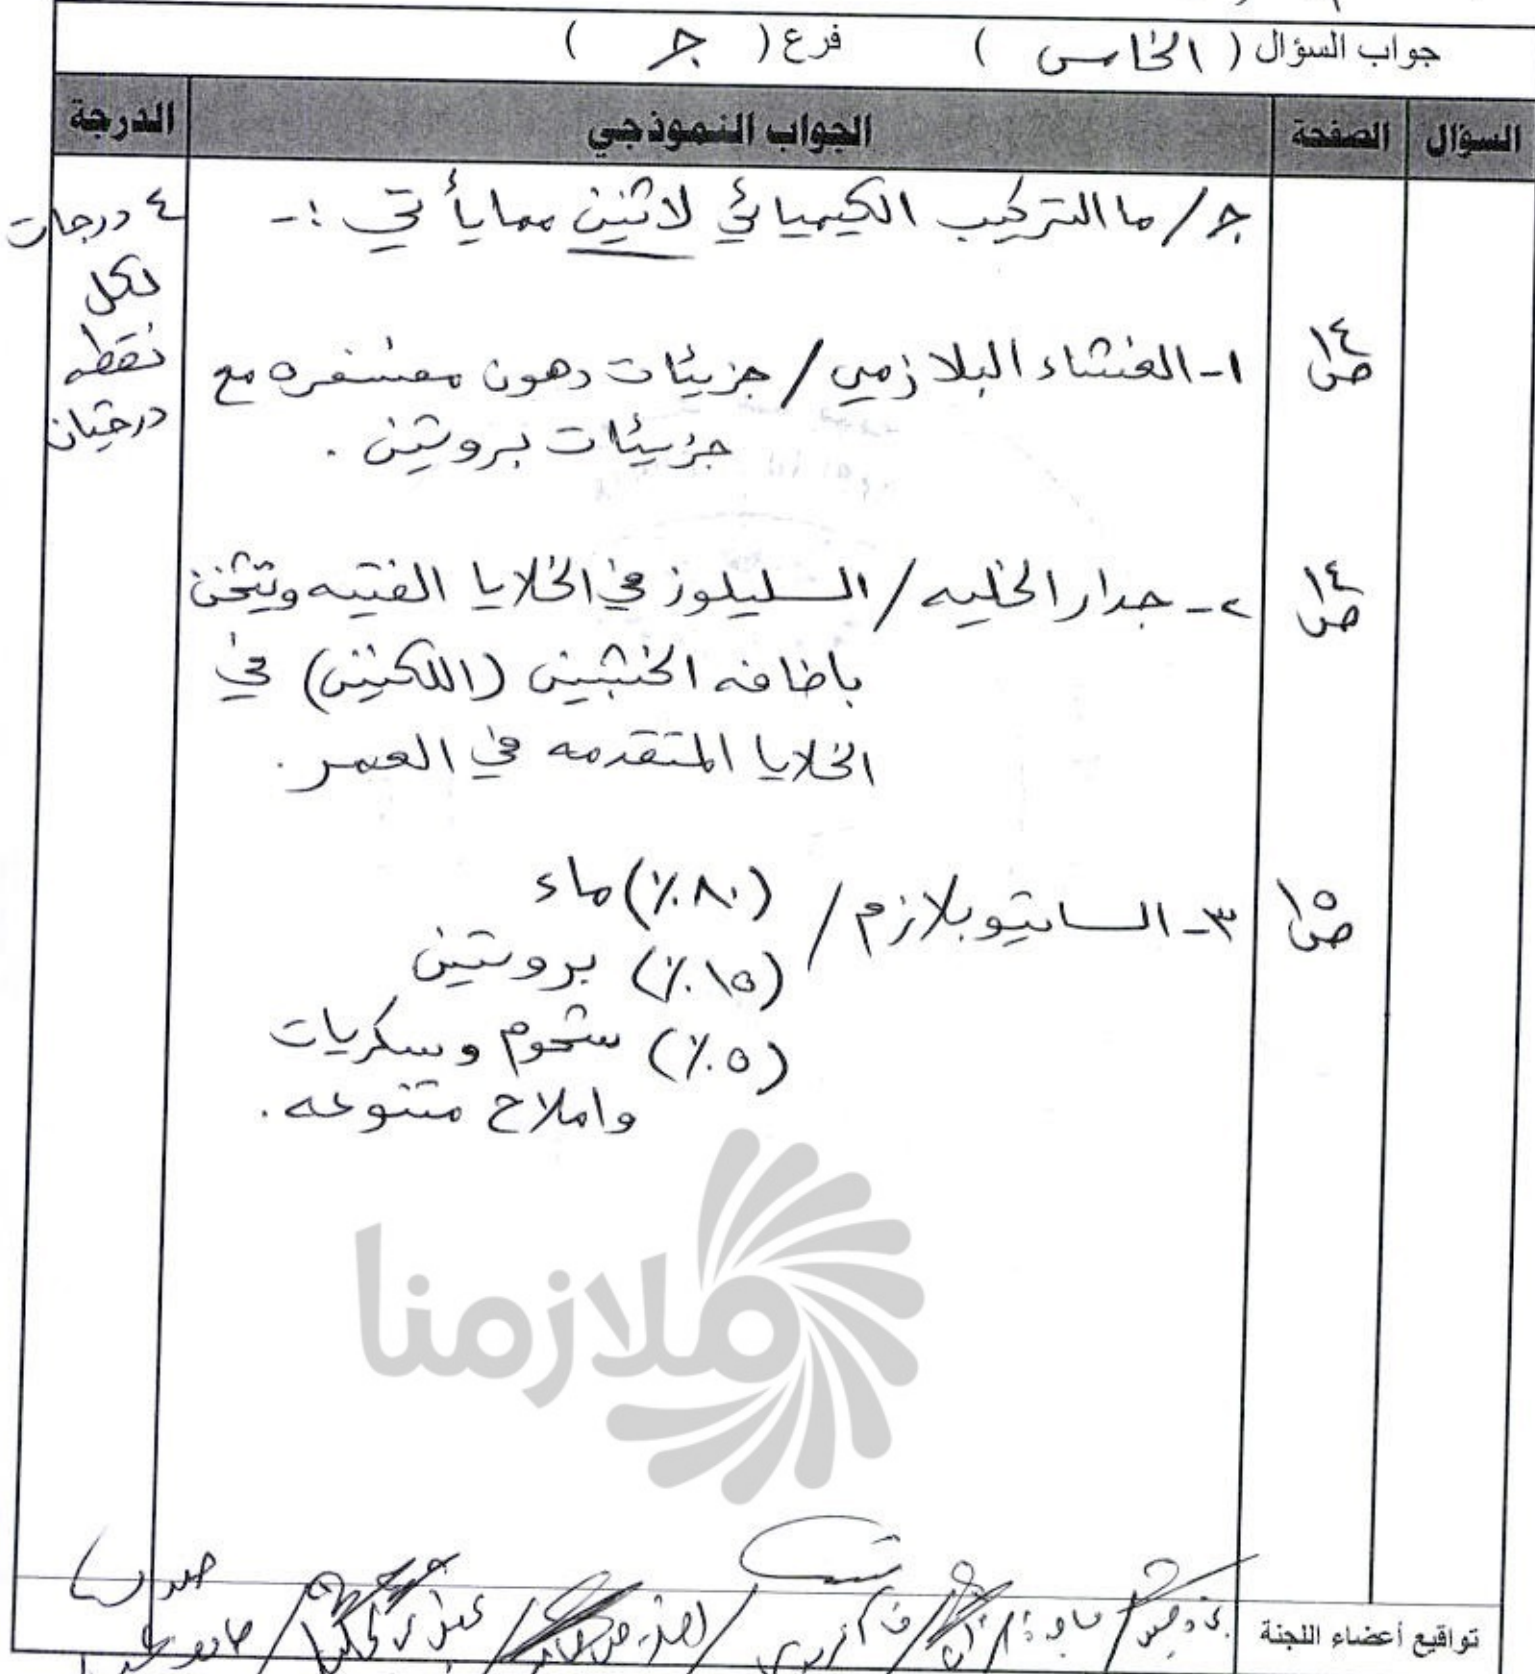 جواب السؤال ( الخامس ) فرع ( جـ )
السؤال الصفحة الجواب النموذجي الدرجة
جـ/ ما التركيب الكيميائي لاثنين مما يأتي :-
٤ درجات
لكل
نقطه
درجتان
ص١٤ ١- الغشاء البلازمي / جزيئات دهون مفسفره مع
جزيئات بروتين .
ص١٤ ٢- جدار الخليه / السليلوز في الخلايا الفتيه ويتخن
باضافه الخشبين (اللكنين) في
الخلايا المتقدمه في العمر .
ص١٥ ٣- السايتوبلازم / (٨٠٪) ماء
(١٥٪) بروتين
(٥٪) شحوم وسكريات
واملاح متنوعه .
ملازمنا
تواقيع أعضاء اللجنة